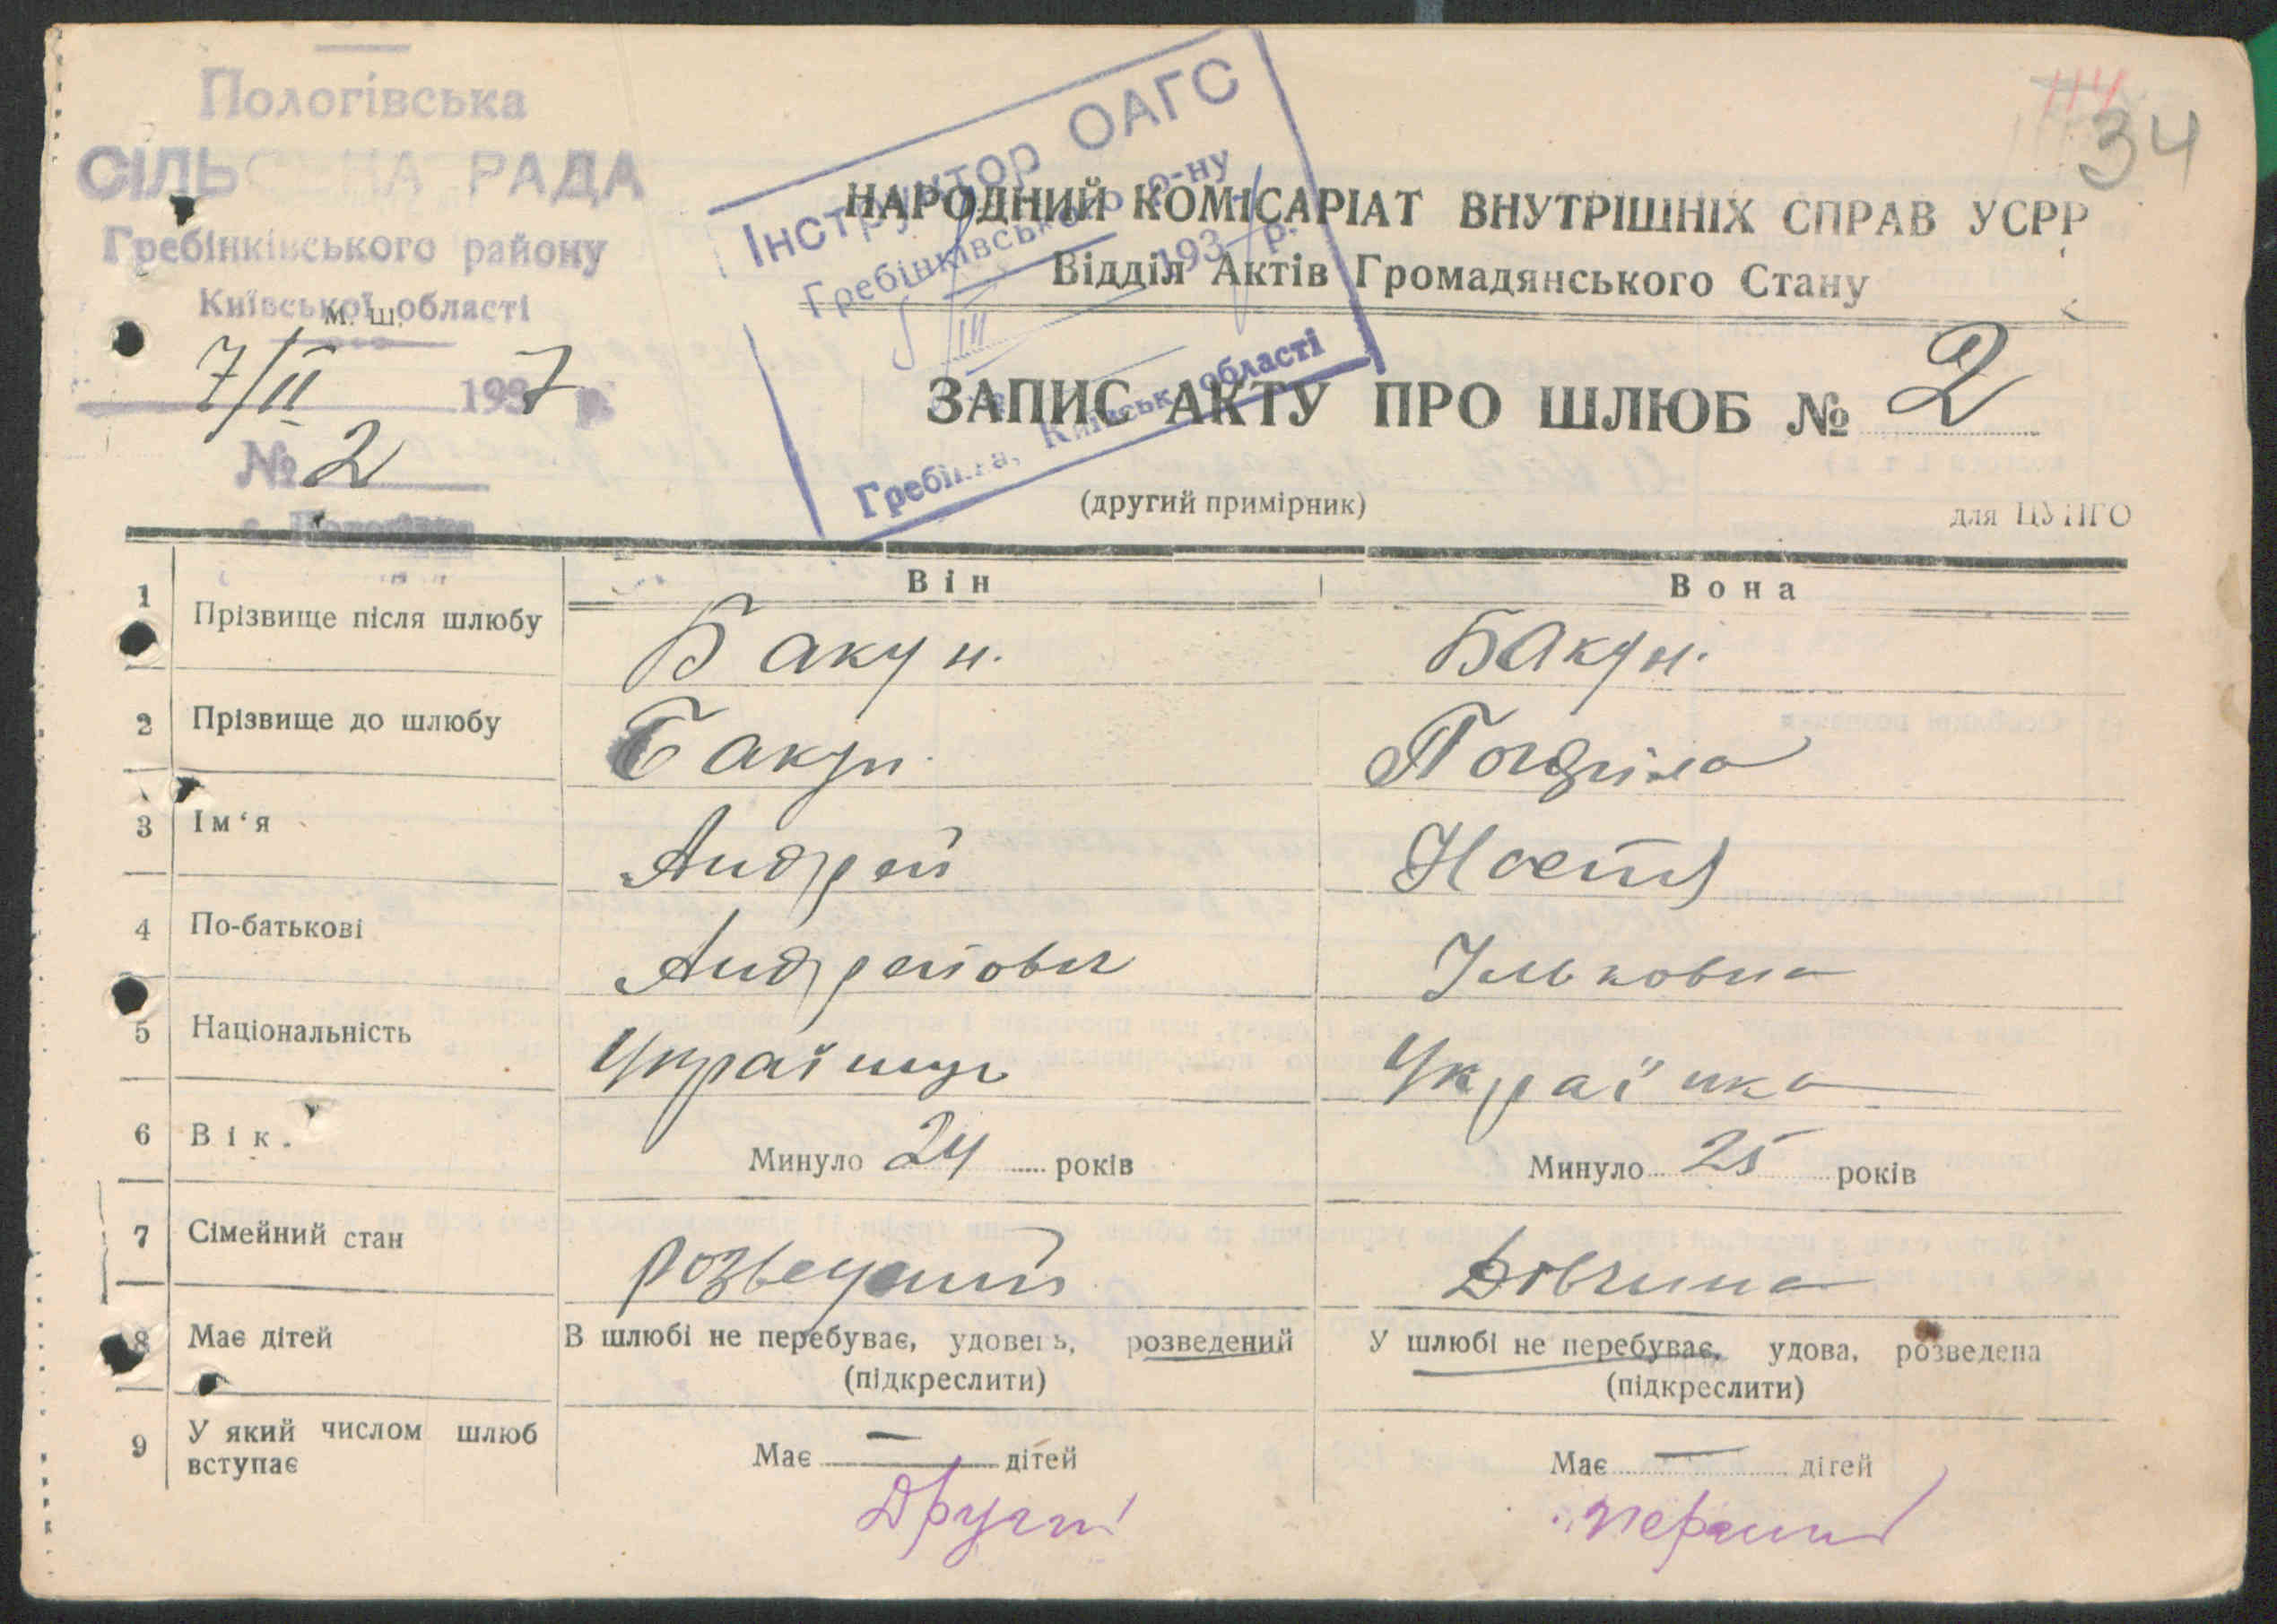 Пологівська
СІЛЬСЬКА РАДА
Гребінківського району
Київської області
м. ш.
7/II 1937 р.
№ 2
114
34
Інструктор ОАГС
Гребінківського р-ну
5/III 1937 р.
Гребінка, Київськ. області
НАРОДНИЙ КОМІСАРІАТ ВНУТРІШНІХ СПРАВ УСРР
Відділ Актів Громадянського Стану
ЗАПИС АКТУ ПРО ШЛЮБ № 2
(другий примірник)
для ЦУНГО
Він Вона
1 Прізвище після шлюбу Бакун. Бакун.
2 Прізвище до шлюбу Бакун.
3 Ім‘я Андрей Настя
4 По-батькові Андрейович Ільковна
5 Національність Українець Українка
6 Вік. Минуло 24 років Минуло 25 років
7 Сімейний стан розведений Дівчина
8 Має дітей В шлюбі не перебуває, удовець, розведений У шлюбі не перебуває, удова, розведена
(підкреслити) (підкреслити)
9 У який числом шлюб вступає Має — дітей Має — дітей
Другий перший